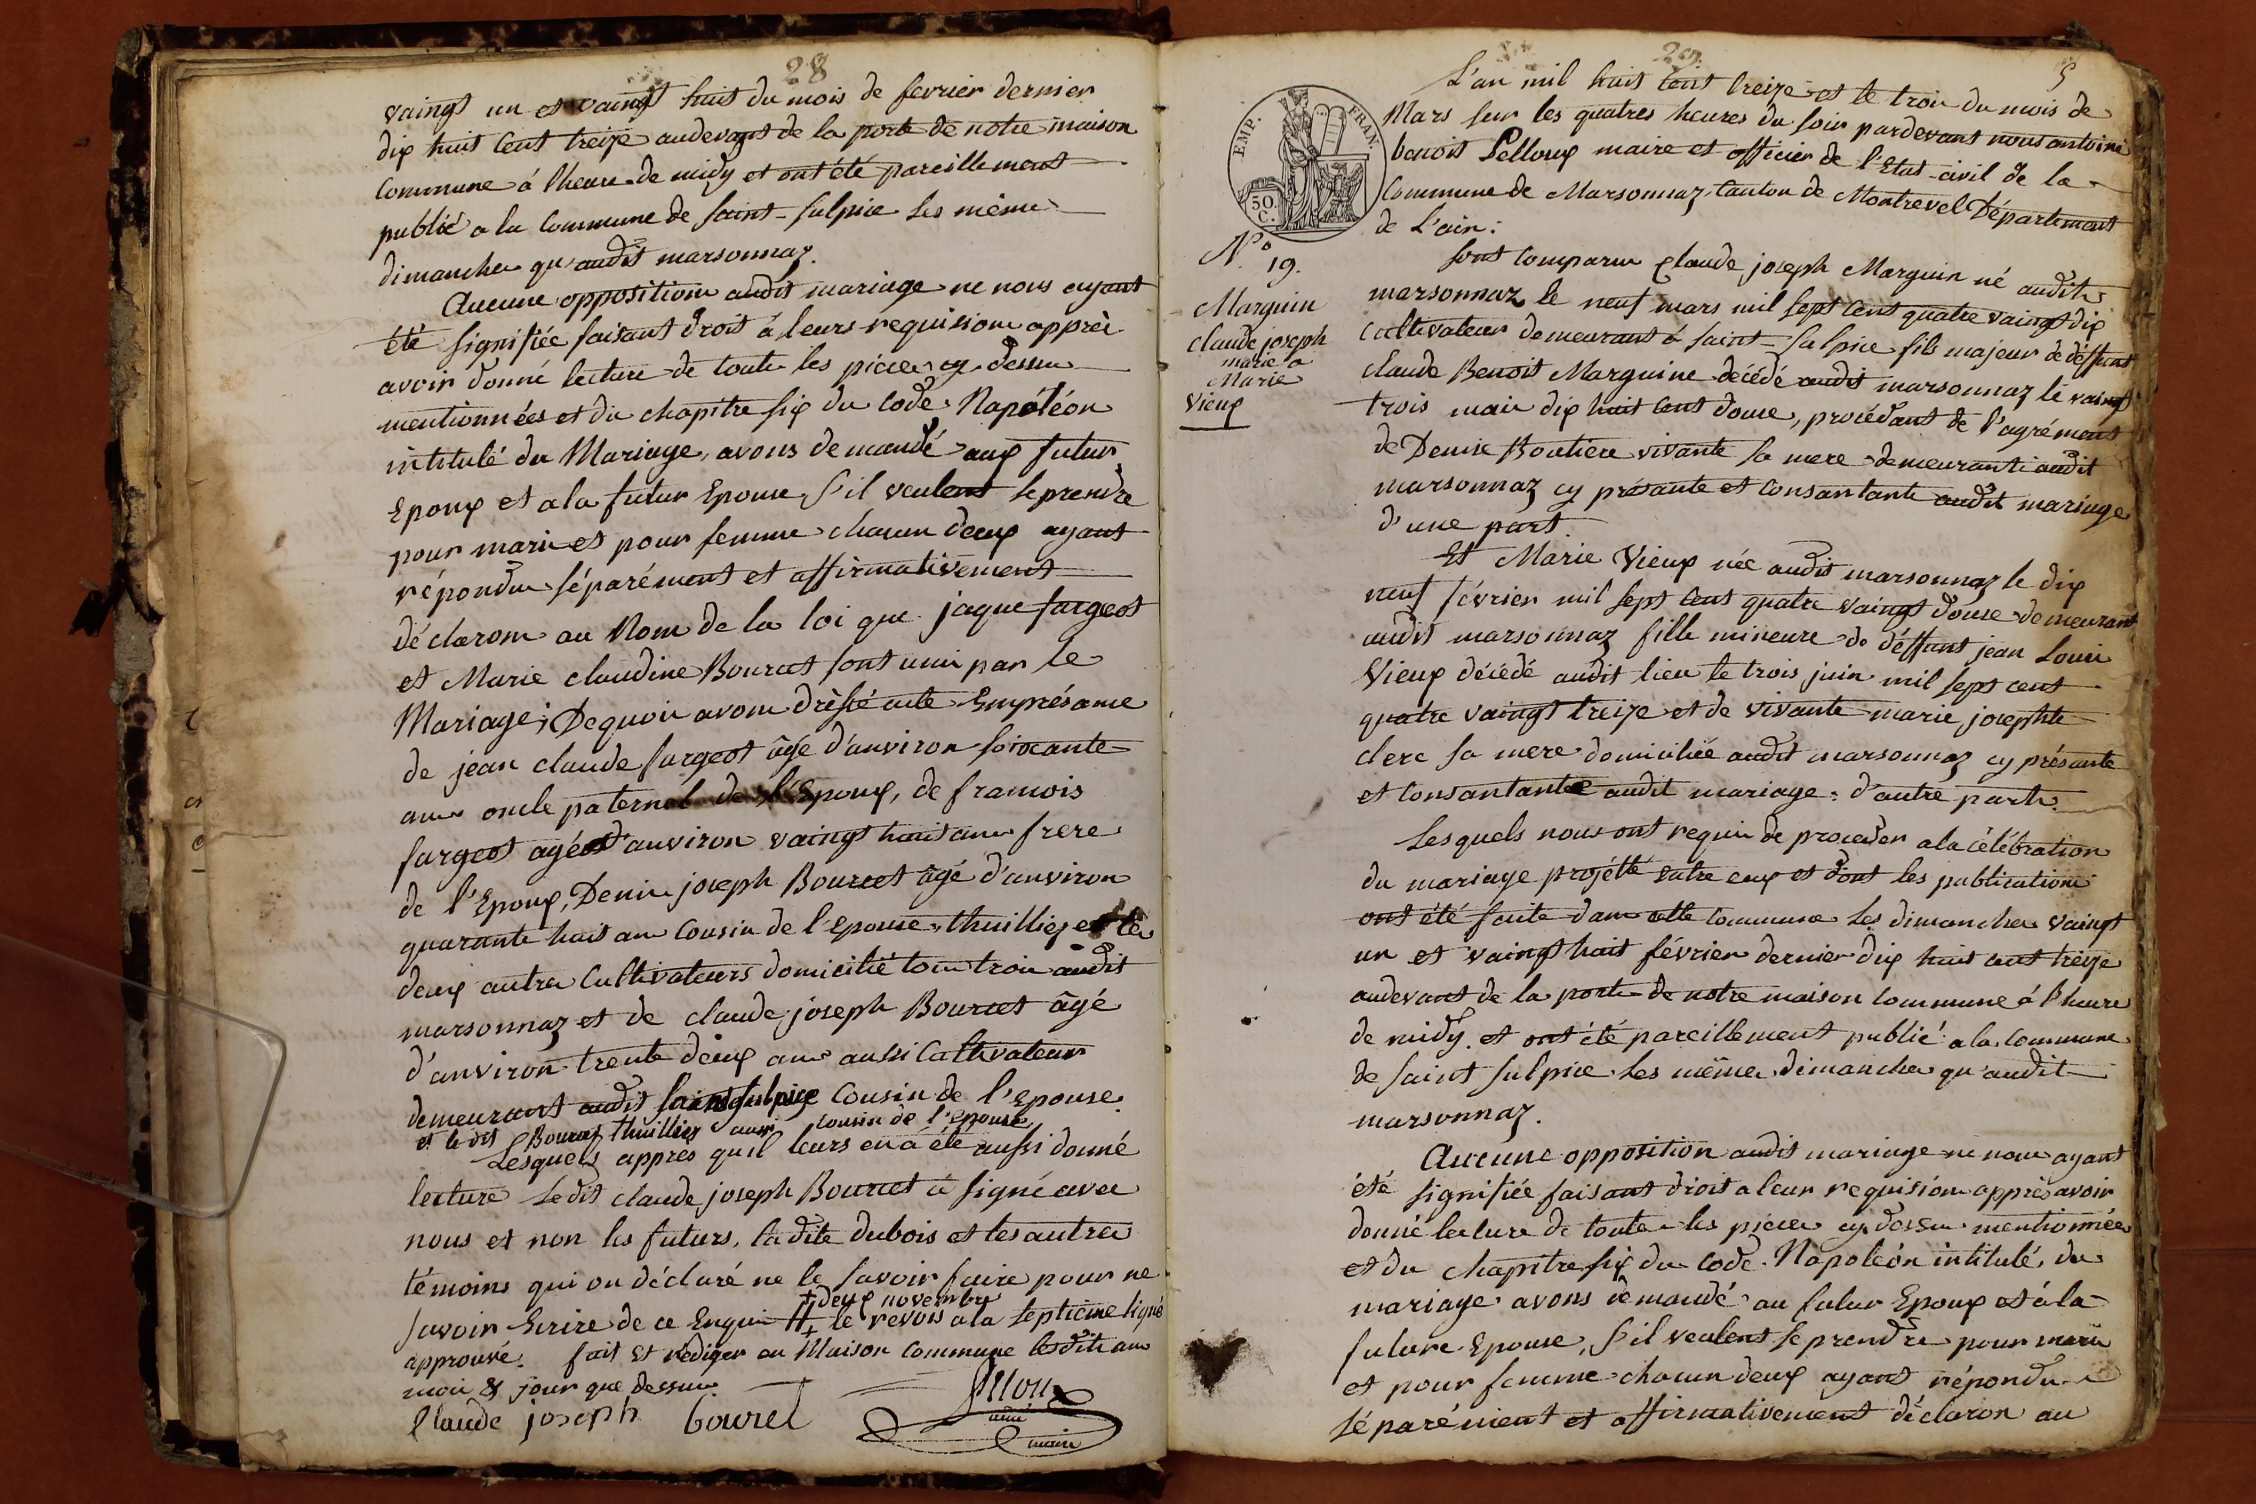 28
vaingt un et vaingt huit du mois de fevrier dernier
dix huit cent treize audevant de la porte de notre maison
commune á l'heure de midy et ont été pareillement
publié a la commune de saint-sulpice les même
dimanches qu'audit marsonnaz.
Aucune opposition audit mariage ne nous ayant
été signifiée faisant droit á leurs requision apprès
avoir donné lecture de toute les pièces cy dessu
mentionnées et du chapitre six du Code Napoléon
intitulé du Mariage, avons demandé aux futur
Epoux et a la futur Epouse s'il veulent se prendre
pour mari et pour femme chacun deux ayant
répondu séparément et affirmativement
déclarons au Nom de la loi que jaque fargeot
et Marie claudine Bourcet sont unis par le
Mariage; De quoi avons dréssé acte En présance
de jean claude fargeot âgé d'anviron soixante
ans oncle paternel de l'Epoux, de francois
fargeot agé d'anviron vaingt huit ans frere
de l'Epoux, Denis joseph Bourcet âgé d'anviron
quarante huit ans Cousin de l'epouse, thuillier et les
deux autres Cultivateurs domicilié tous trois audit
marsonnaz et de claude joseph Bourcet âgé
d'anviron trente deux ans aussi Cultivateur
demeurant audit saint sulpice Cousin de l'epouse
et le dit Bourcet thuillier aussi cousin de l'Epouse
Lesquels apprès qu'il leurs en á été aussi donné
lecture Ledit claude joseph Bourcet á signé avec
nous et non les futurs, ladite dubois et les autres
témoins qui on déclaré ne le savoir faire pour ne
+ deux novembre
savoir Ecrire de ce Enquis le revois a la septieme ligne
approuvé. fait Et rédiger en Maison Commune lesdits an
mois & jour que dessus.
Claude joseph bourcet
Pelloux
maire
29
5
L'an mil huit cent treize et le trois du mois de
Mars sur les quatres heures du soir pardevant nous antoine
benoit Pelloux maire et officier de l'Etat-civil de la
Commune de Marsonnaz Canton de Montrevel Département
de L'ain:
EMP. FRAN.
50.
C.
N.º
19.
Marguin
claude joseph
marié a
Marie
Vieux
Sont Comparus Claude joseph Marguin né audit
marsonnaz le neuf mars mil sept cent quatre vaingt dix
cultivateur demeurant á saint-sulpice fils majeur de déffunt
claude Benoit Marguine décédé audit marsonnaz le vaingt
trois mais dix huit cent douse, procédant de l'agrément
de Denise Boutiere vivante sa mere demeurante audit
marsonnaz cy présante et consantante audit mariage
d'une part.
Et Marie Vieux née audit marsonnaz le dix
neuf février mil sept cent quatre vaingt douse demeurant
audit marsonnaz fille mineure de déffunt jean Louis
Vieux décédé audit lieu le trois juin mil sept cent
quatre vaingt treize et de vivante marie josephte
clerc sa mere domiciliée audit marsonnaz cy présante
et consantante audit mariage: d'autre part.
Lesquels nous ont requis de proceder a la célébration
du mariage projétté entre eux et dont les publications
ont été faite dans cette commune les dimanches vaingt
un et vaingt huit février dernier dix huit cent treize
audevant de la porte de notre maison commune á l'heure
de midy. et ont été pareillement publié a la commune
de saint sulpice les même dimanches qu'audit
marsonnaz.
Aucune opposition audit mariage ne nous ayant
été signifiée faisant droit a leur requision apprès avoir
donné lecture de toute les pièces cy dessu mentionnées
et du chapitre six du Code Napoléon intitulé, du
mariage avons demandé au futur Epoux et á la
future Epouse, s'il veulent se prendre pour mari
et pour femme chacun deux ayant répondu
séparément et affirmativement déclaron au